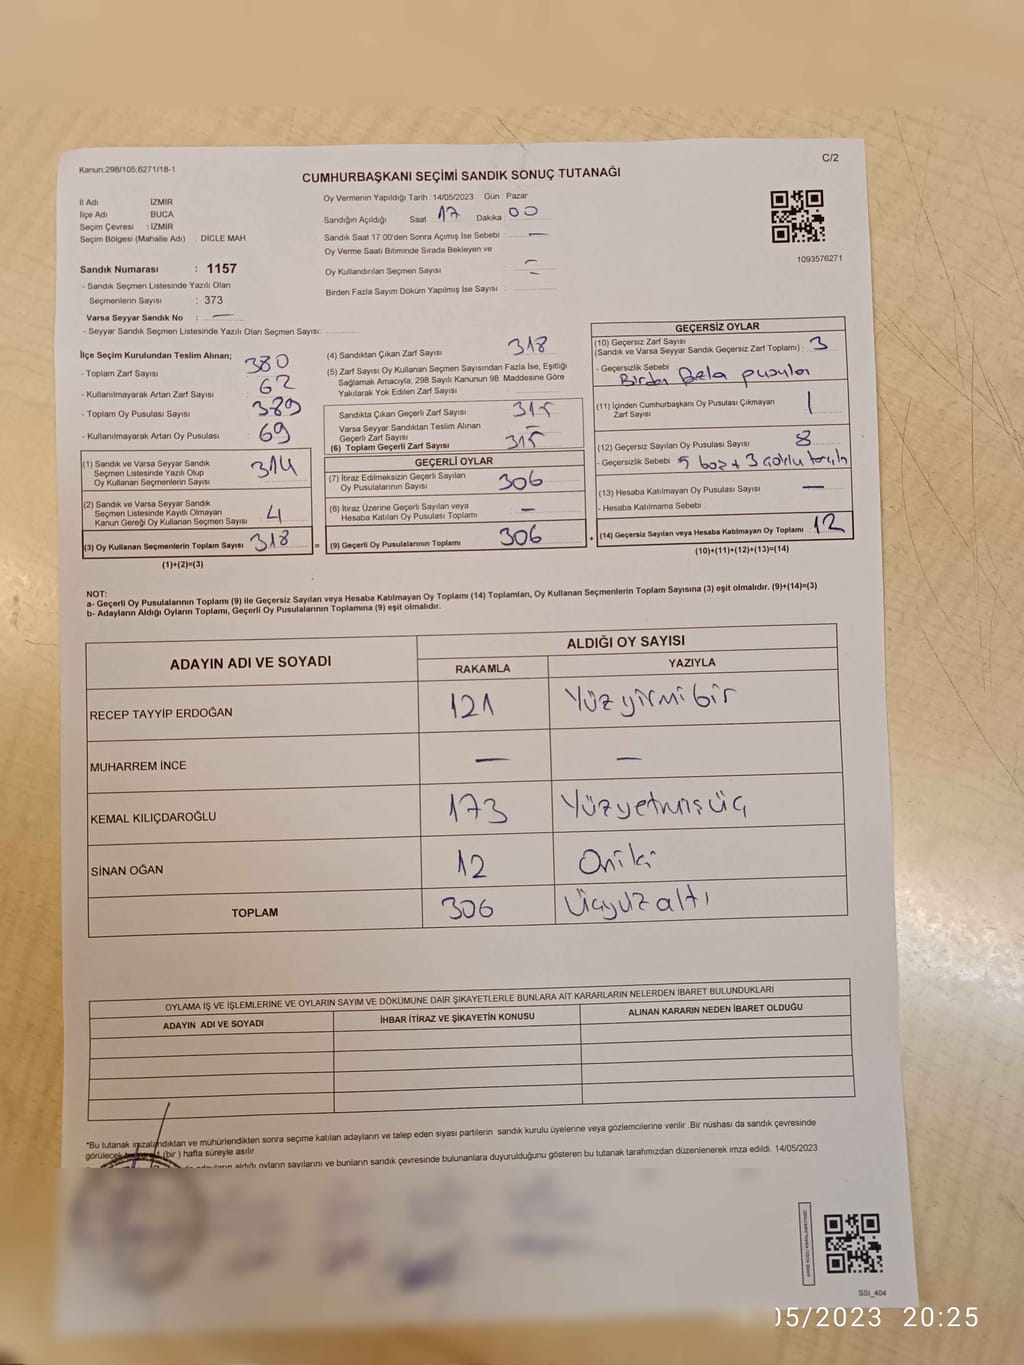 Kanun.298/105;6271/18-1
C/2
CUMHURBAŞKANI SEÇİMİ SANDIK SONUÇ TUTANAĞI
İl Adı İZMİR
İlçe Adı BUCA
Seçim Çevresi : İZMİR
Seçim Bölgesi (Mahalle Adı) : DİCLE MAH
Sandık Numarası : 1157
- Sandık Seçmen Listesinde Yazılı Olan
Seçmenlerin Sayısı : 373
Varsa Seyyar Sandık No : —
- Seyyar Sandık Seçmen Listesinde Yazılı Olan Seçmen Sayısı:
Oy Vermenin Yapıldığı Tarih :14/05/2023 Gün Pazar
Sandığın Açıldığı Saat 17 Dakika 00
Sandık Saat 17:00'den Sonra Açımış İse Sebebi —
Oy Verme Saati Bitiminde Sırada Bekleyen ve
Oy Kullandırılan Seçmen Sayısı —
Birden Fazla Sayım Döküm Yapılmış İse Sayısı : —
1093576271
İlçe Seçim Kurulundan Teslim Alınan;
- Toplam Zarf Sayısı 380
- Kullanılmayarak Artan Zarf Sayısı 62
- Toplam Oy Pusulası Sayısı 389
- Kullanılmayarak Artan Oy Pusulası 69
(1) Sandık ve Varsa Seyyar Sandık
Seçmen Listesinde Yazılı Olup
Oy Kullanan Seçmenlerin Sayısı 314
(2) Sandık ve Varsa Seyyar Sandık
Seçmen Listesinde Kayıtlı Olmayan
Kanun Gereği Oy Kullanan Seçmen Sayısı 4
(3) Oy Kullanan Seçmenlerin Toplam Sayısı 318
(1)+(2)=(3)
(4) Sandıktan Çıkan Zarf Sayısı 318
(5) Zarf Sayısı Oy Kullanan Seçmen Sayısından Fazla İse, Eşitliği
Sağlamak Amacıyla, 298 Sayılı Kanunun 98. Maddesine Göre
Yakılarak Yok Edilen Zarf Sayısı
Sandıkta Çıkan Geçerli Zarf Sayısı 315
Varsa Seyyar Sandıktan Teslim Alınan
Geçerli Zarf Sayısı —
(6) Toplam Geçerli Zarf Sayısı 315
GEÇERLİ OYLAR
(7) İtiraz Edilmeksizin Geçerli Sayılan
Oy Pusulalarının Sayısı 306
(8) İtiraz Üzerine Geçerli Sayılan veya
Hesaba Katılan Oy Pusulası Toplamı —
= (9) Geçerli Oy Pusulalarının Toplamı 306
GEÇERSİZ OYLAR
(10) Geçersiz Zarf Sayısı
(Sandık ve Varsa Seyyar Sandık Geçersiz Zarf Toplamı) : 3
- Geçersizlik Sebebi Birden fazla pusula
(11) İçinden Cumhurbaşkanı Oy Pusulası Çıkmayan
Zarf Sayısı 1
(12) Geçersiz Sayılan Oy Pusulası Sayısı 8
- Geçersizlik Sebebi 5 boz + 3
(13) Hesaba Katılmayan Oy Pusulası Sayısı —
- Hesaba Katılmama Sebebi
+ (14) Geçersiz Sayılan veya Hesaba Katılmayan Oy Toplamı : 12
(10)+(11)+(12)+(13)=(14)
NOT:
a- Geçerli Oy Pusulalarının Toplamı (9) ile Geçersiz Sayılan veya Hesaba Katılmayan Oy Toplamı (14) Toplamları, Oy Kullanan Seçmenlerin Toplam Sayısına (3) eşit olmalıdır. (9)+(14)=(3)
b- Adayların Aldığı Oyların Toplamı, Geçerli Oy Pusulalarının Toplamına (9) eşit olmalıdır.
ADAYIN ADI VE SOYADI ALDIĞI OY SAYISI
RAKAMLA YAZIYLA
RECEP TAYYİP ERDOĞAN 121 Yüzyirmibir
MUHARREM İNCE — —
KEMAL KILIÇDAROĞLU 173 Yüzyetmişüç
SİNAN OĞAN 12 Oniki
TOPLAM 306 Üçyüzaltı
OYLAMA İŞ VE İŞLEMLERİNE VE OYLARIN SAYIM VE DÖKÜMÜNE DAİR ŞİKAYETLERLE BUNLARA AİT KARARLARIN NELERDEN İBARET BULUNDUKLARI
ADAYIN ADI VE SOYADI İHBAR İTİRAZ VE ŞİKAYETİN KONUSU ALINAN KARARIN NEDEN İBARET OLDUĞU
*Bu tutanak imzalandıktan ve mühürlendikten sonra seçime katılan adayların ve talep eden siyasi partilerin sandık kurulu üyelerine veya gözlemcilerine verilir .Bir nüshası da sandık çevresinde
görülecek (bir ) hafta süreyle asılır
aldığı oyların sayılarını ve bunların sandık çevresinde bulunanlara duyurulduğunu gösteren bu tutanak tarafımızdan düzenlenerek imza edildi. 14/05/2023
SSI_404
05/2023 20:25